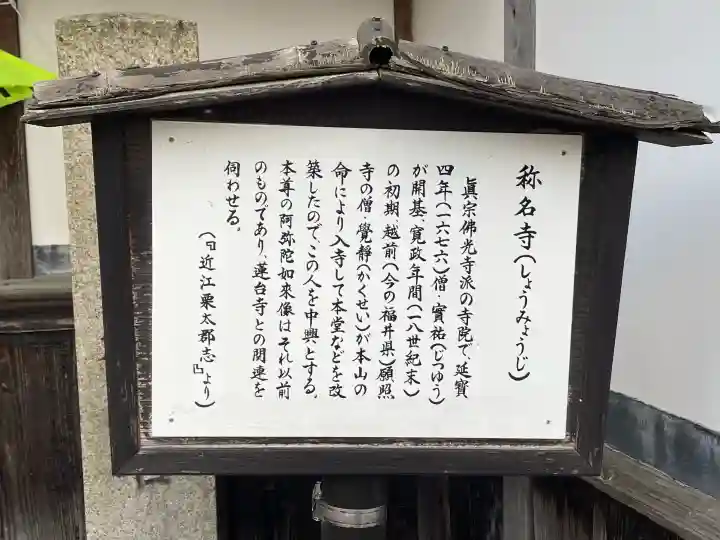 称名寺(しょうみょうじ)
眞宗佛光寺派の寺院で、延寶
四年(一六七六)僧・實祐(じつゆう)
が開基、寛政年間(一八世紀末)
の初期、越前(今の福井県)願照
寺の僧・覺靜(かくせい)が本山の
命により入寺して本堂などを改
築したので、この人を中興とする。
本尊の阿弥陀如來像はそれ以前
のものであり、蓮台寺との関連を
伺わせる。
(『近江栗太郡志』より)